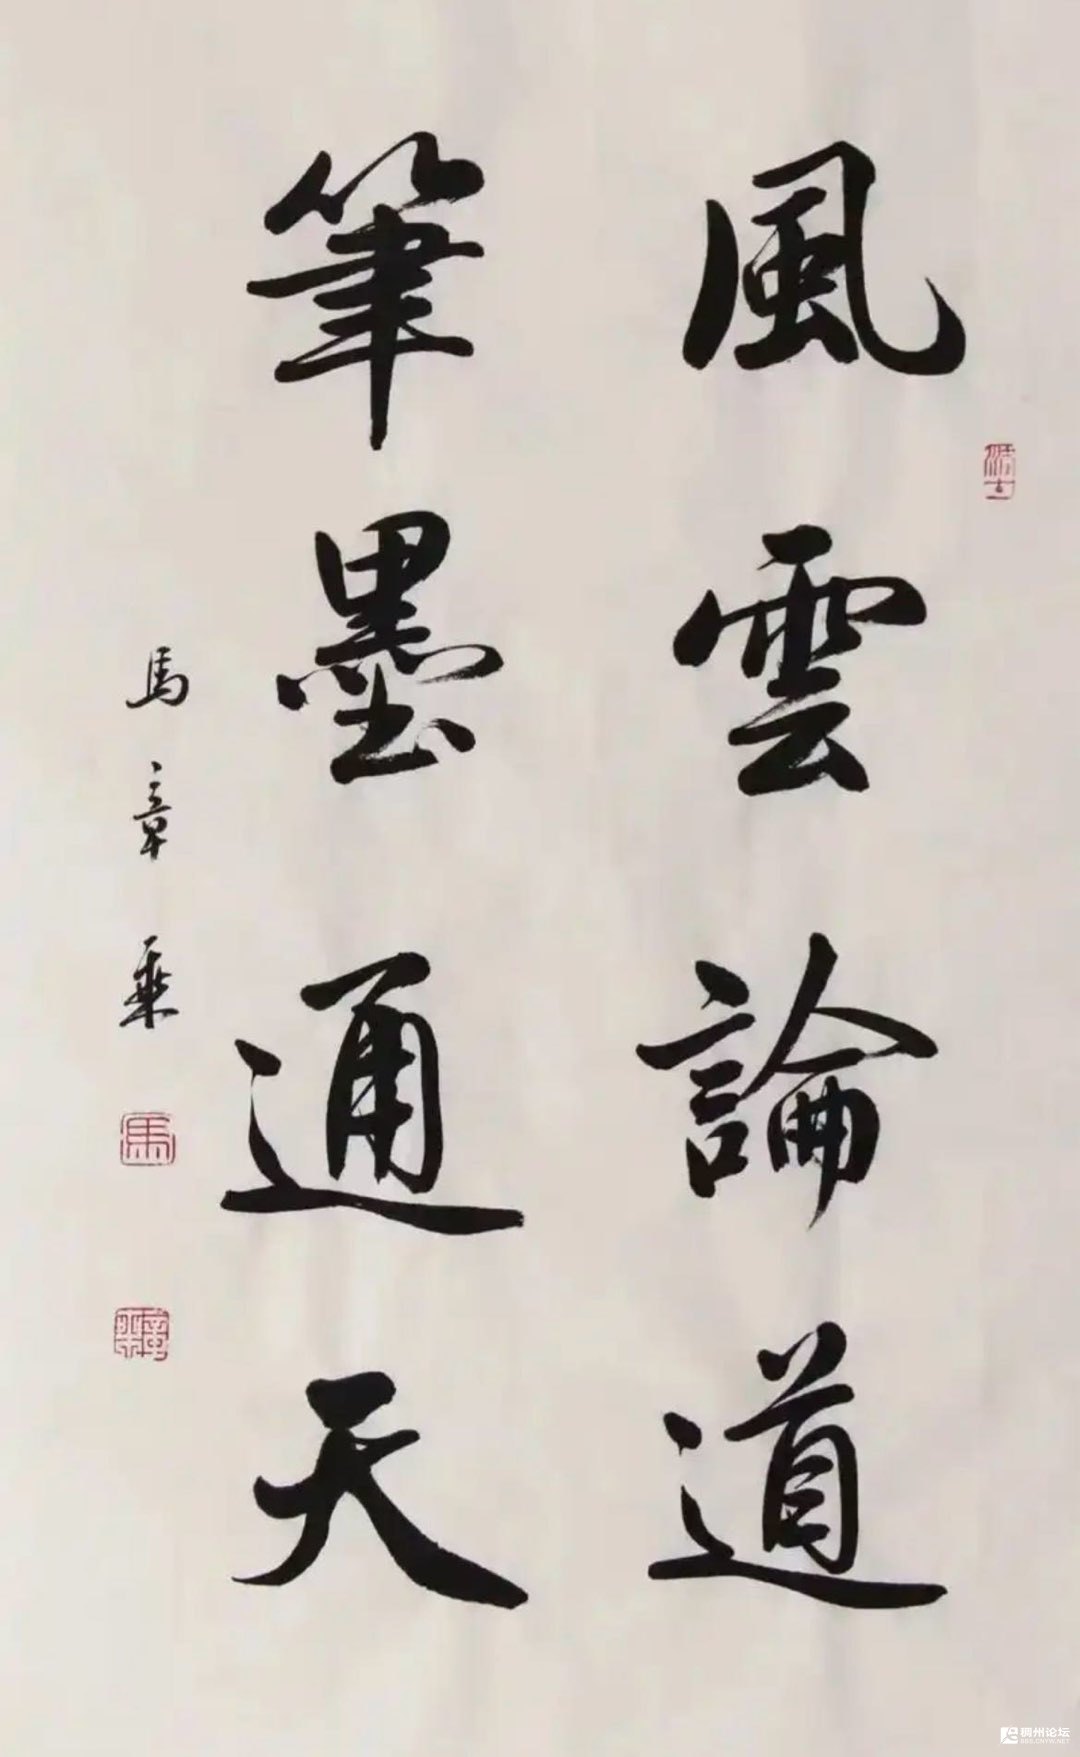 風雲論道
筆墨通天
馬章乘
馬
章乘
稠州论坛
BBS.CNYW.NET